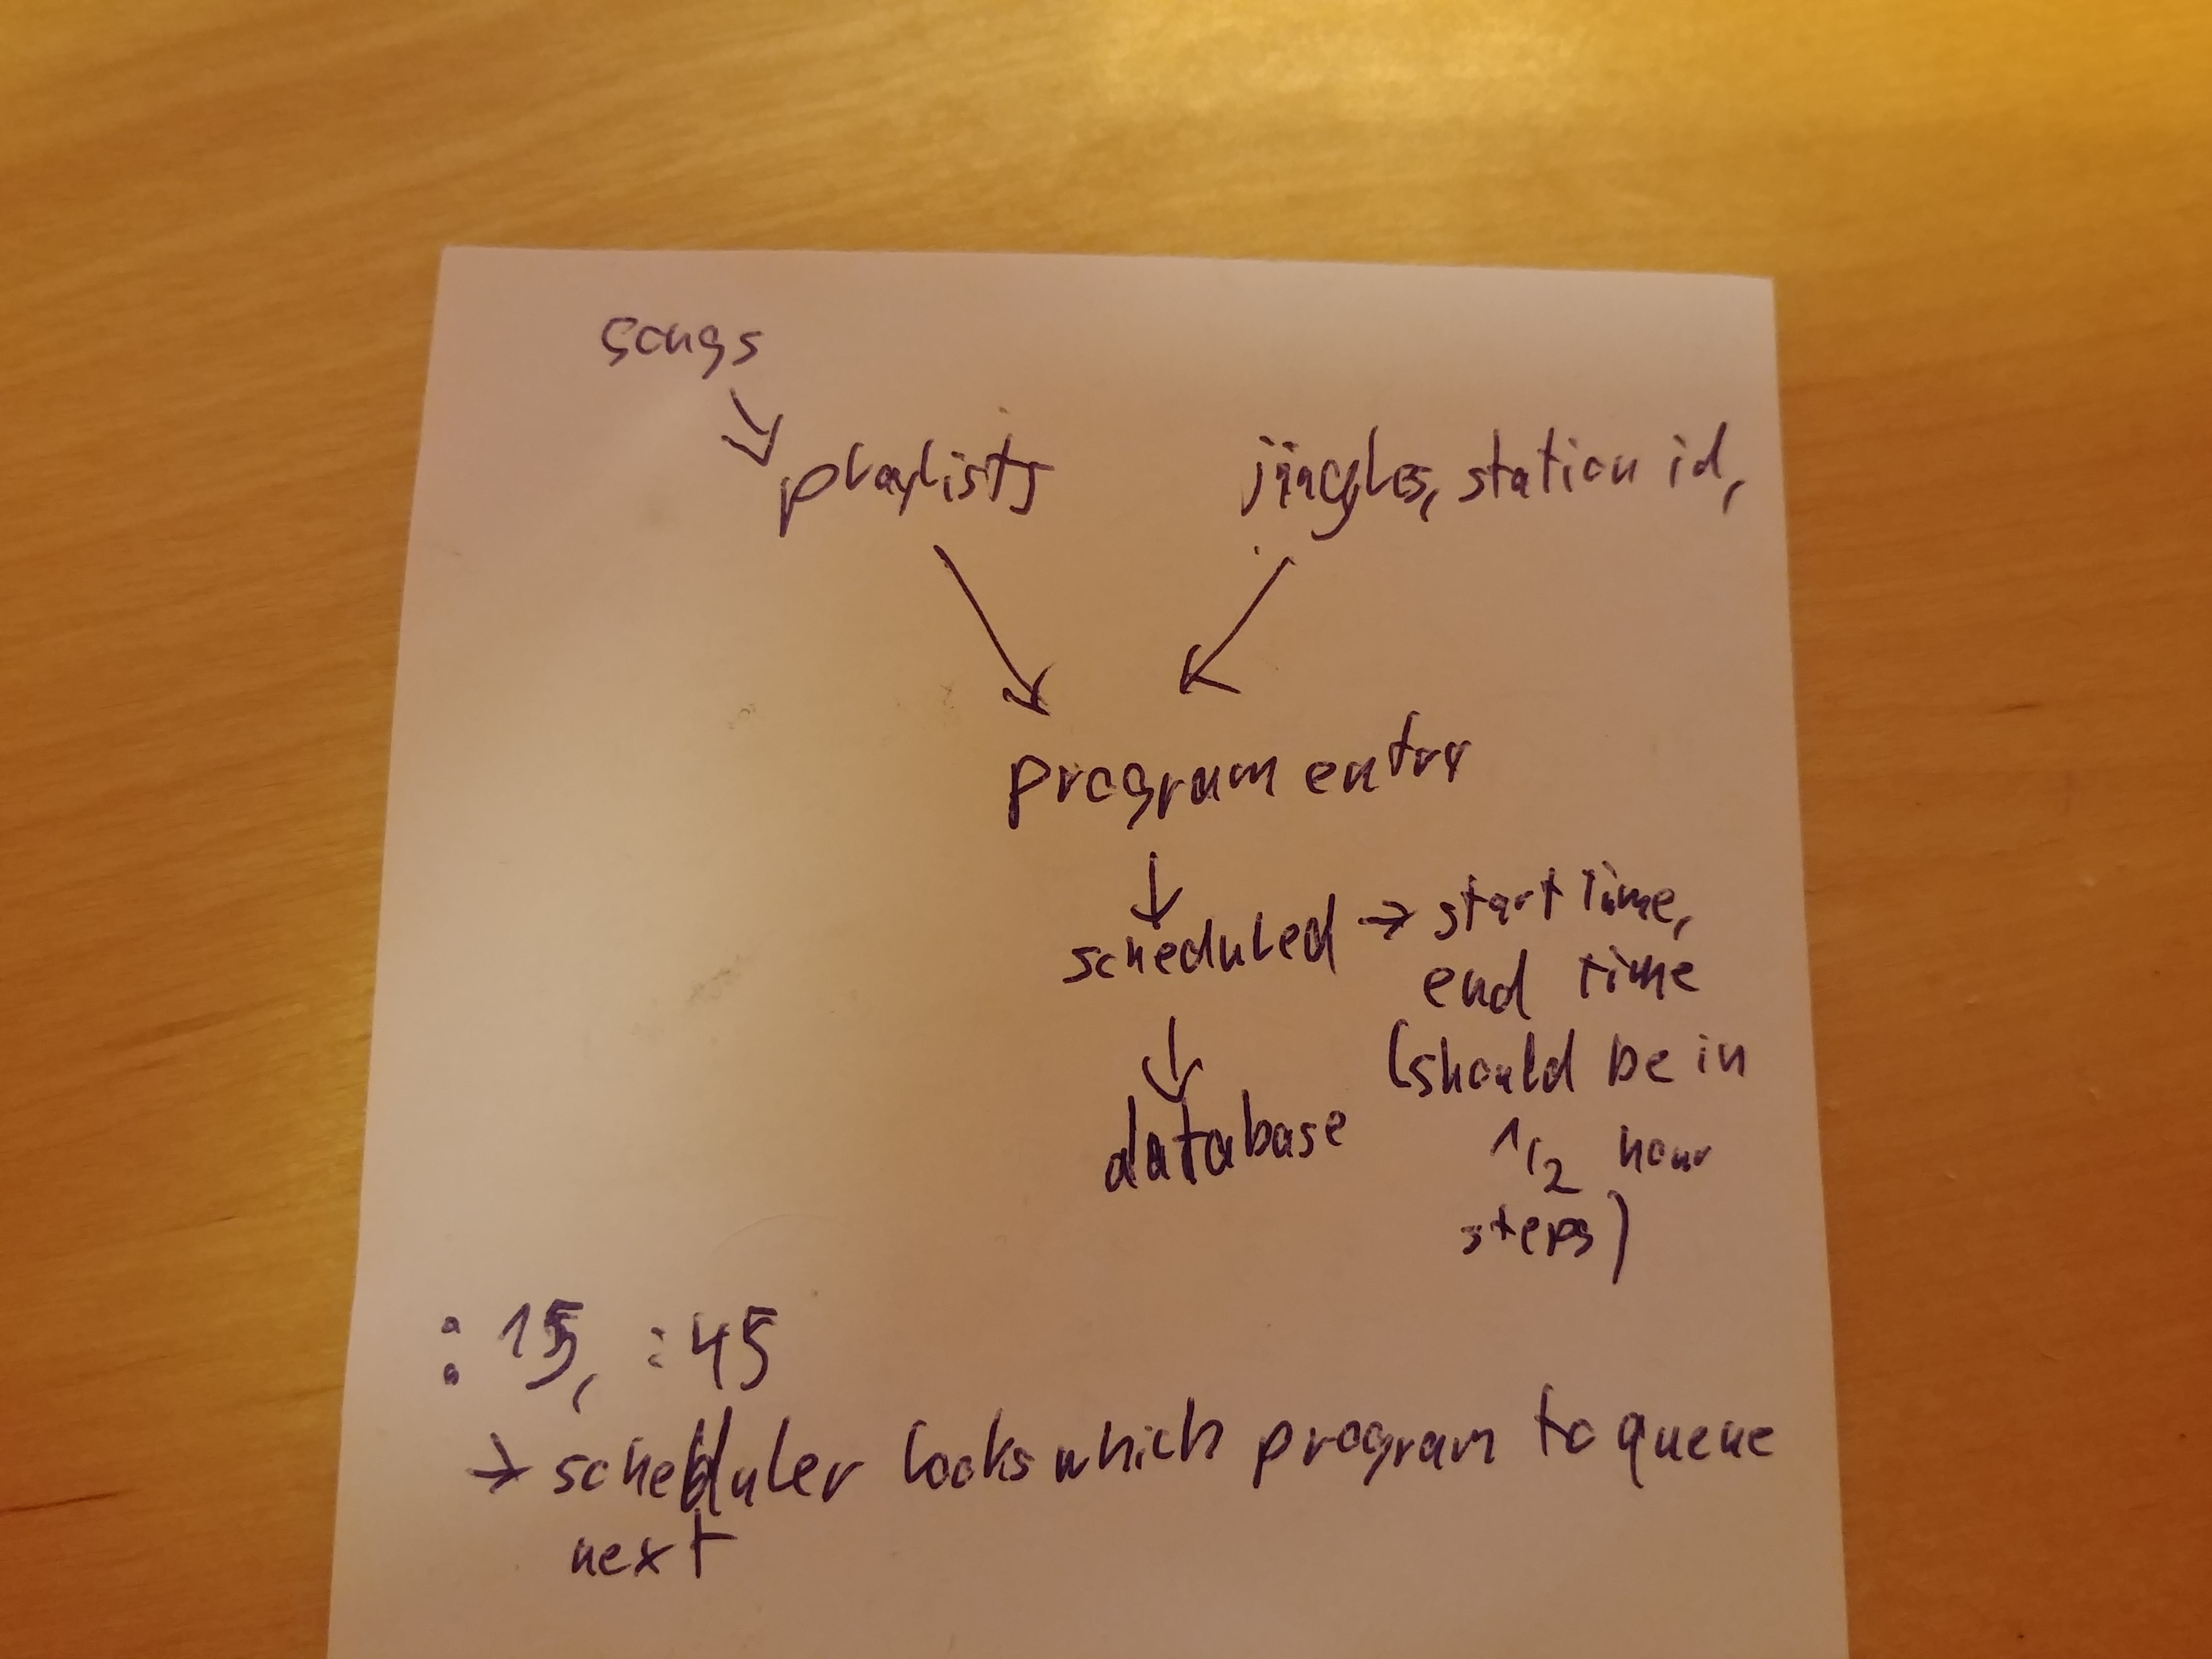 songs
playlists
jingles, station id,
program entry
scheduled → start time,
end time
(should be in
1/2 hour
steps)
database
:15, :45
→ scheduler looks which program to queue
next